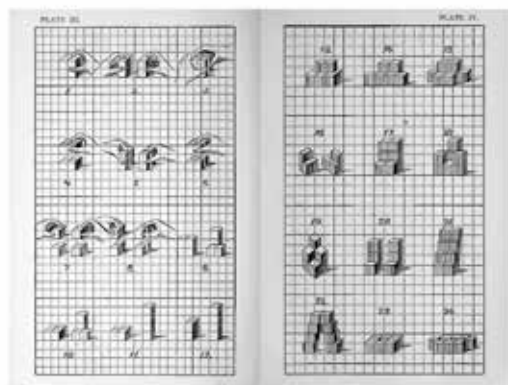 PLATE III.
1. 2. 3.
4. 5. 6.
7. 8. 9.
10. 11. 12.
PLATE IV.
13. 14. 15.
16. 17. 18.
19. 20. 21.
22. 23. 24.